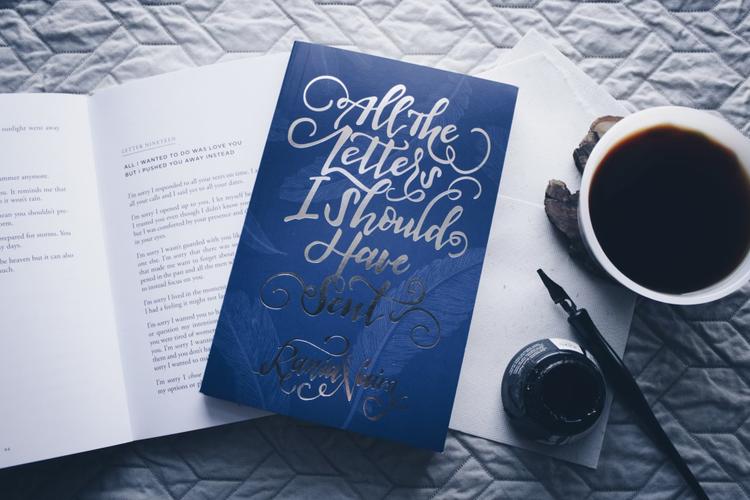 sunlight went away
summer anymore.
It reminds me that
it won't rain.
mean you shouldn't pre-
prepared for storms. You
days.
be heaven but it can also
such.
LETTER NINETEEN
ALL I WANTED TO DO WAS LOVE YOU
BUT I PUSHED YOU AWAY INSTEAD
I'm sorry I responded to all your texts on time.
all your calls and I said yes to all your dates.
I'm sorry I opened up to you, I let myself
I trusted you even though I didn't know you
but I was comforted by your presence and
in your eyes.
I'm sorry I wasn't guarded with you like
one else. I'm sorry that there was
that made me want to forget about
pened in the past and all the men
to instead focus on you.
I'm sorry I lived in the moment
I had a feeling it might not
I'm sorry I wanted you to
or question my intentions
you were tired of women
you. I'm sorry I wanted
them and you don't
sorry I wanted to
I'm sorry I chose
my options
All the
Letters
I Should
Have
Sent
Rania Naim